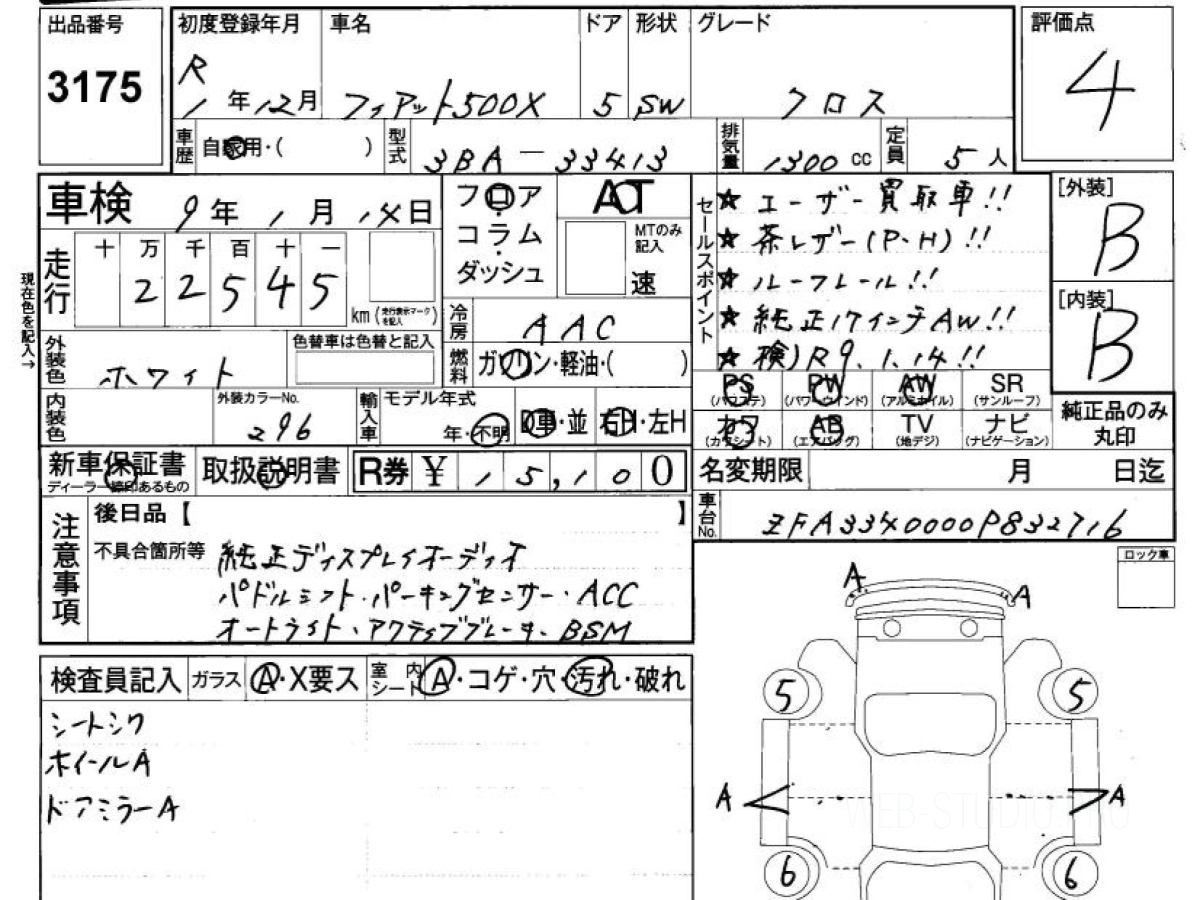 出品番号
3175
初度登録年月
R
1年12月
車名
フィアット500X
ドア
5
形状
SW
グレード
クロス
評価点
4
車歴
自家用・( )
型式
3BA-33413
排気量
1300 cc
定員
5人
車検
9年1月14日
フロア
コラム
ダッシュ
AT
MTのみ
記入
速
セールスポイント
★ユーザー買取車!!
★茶レザー(P・H)!!
★ルーフレール!!
★純正17インチAW!!
★検)R9.1.14!!
[外装]
B
[内装]
B
現在色を記入→
走行
十 万 千 百 十 一
2 2 5 4 5
km(走行表示マークを記入)
冷房
AAC
燃料
ガソリン・軽油・( )
外装色
ホワイト
色替車は色替と記入
内装色
外装カラーNo.
296
輸入車
モデル年式
年・不明
D車・並
右H・左H
PS
(パワステ)
PW
(パワーウインド)
AW
(アルミホイル)
SR
(サンルーフ)
カワ
(カワシート)
AB
(エアバッグ)
TV
(地デジ)
ナビ
(ナビゲーション)
純正品のみ
丸印
新車保証書
取扱説明書
R券 ¥ 15,100
名変期限 月 日迄
車台No.
ZFA3340000P832716
注意事項
後日品【 】
不具合箇所等
純正ディスプレイオーディオ
パドルシフト・パーキングセンサー・ACC
オートライト・アクティブブレーキ・BSM
ロック車
検査員記入
ガラス
A・X要ス
室内シート
A・コゲ・穴・汚れ・破れ
シートシワ
ホイールA
ドアミラーA
A
A
5
5
A
A
6
6